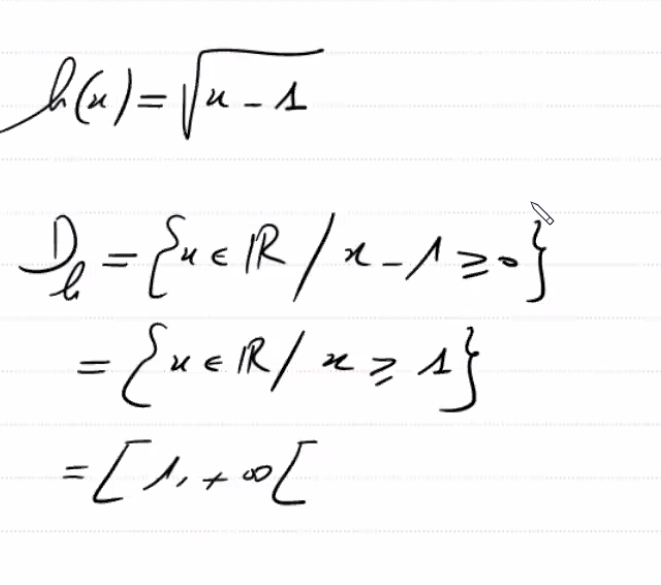 h(x) = √(x - 1)
D_h = {x ∈ ℝ / x - 1 ≥ 0}
= {x ∈ ℝ / x ≥ 1}
= [1, +∞[